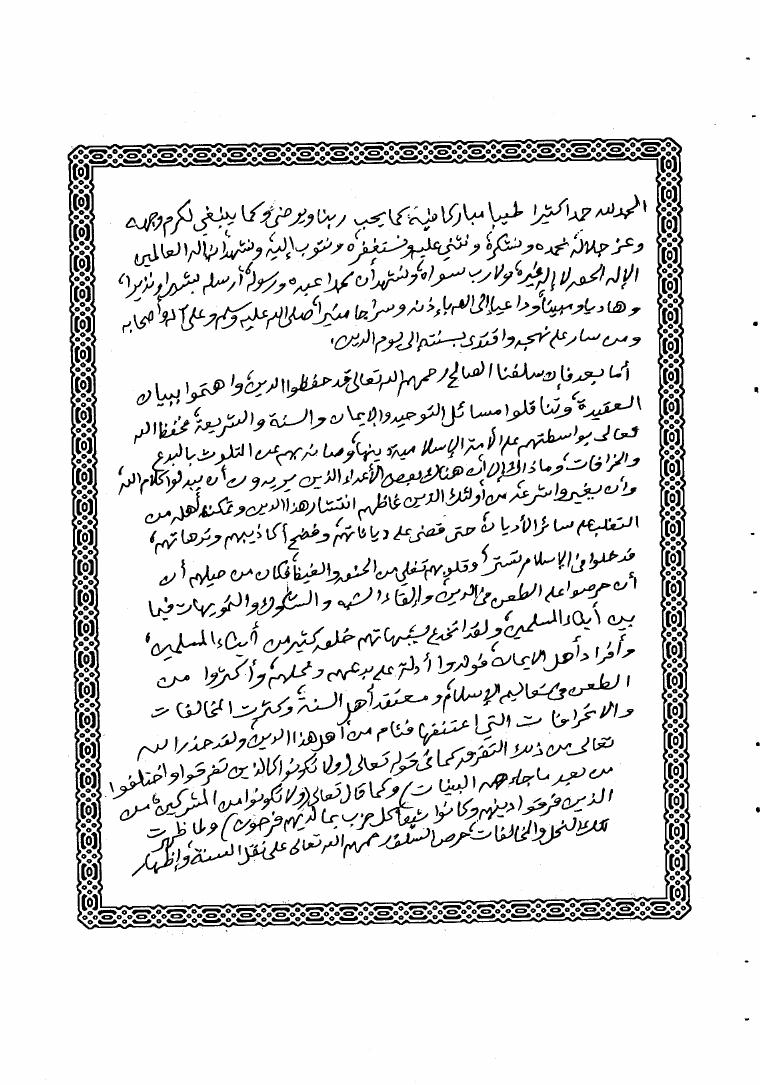 الحمد لله حمدا كثيرا طيبا مباركا فيه كما يحب ربنا ويرضى، وكما ينبغي لكرم وجهه
وعز جلاله نحمده ونشكره ونثني عليه ونستغفره ونتوب إليه ونشهد أنه إله العالمين
الإله الحق لا إله غيره ولا رب سواه، ونشهد أن محمدا عبده ورسوله أرسله بشيرا ونذيرا،
وهاديا ومبينا وداعيا إلى الله بإذنه وسراجا منيرا صلى الله عليه وسلم وعلى آله وأصحابه
ومن سار على نهجه واقتدى بسنته إلى يوم الدين.
أما بعد فإن سلفنا الصالح رحمهم الله تعالى قد حفظوا الدين، واهتموا ببيان
العقيدة، وتناقلوا مسائل التوحيد والإيمان والسنة والشريعة، فحفظ الله
تعالى بواسطتهم على الأمة الإسلامية دينها، وصانه بهم عن التلوث بالبدع
والخرافات، وما ذاك إلا أن هناك بعض الأعداء الذين يريدون أن يبدلوا كلام الله،
وأن يغيروا شرعه من أولئك الذين غاظهم انتشار هذا الدين وتمكنه أهله من
التغلب على سائر الأديان حتى قضى على دياناتهم، وفضح أكاذيبهم وترهاتهم،
فدخلوا في الإسلام تسترا وقلوبهم تغلي من الحنق والغيظ فكان من حيلهم أن
أن حرصوا على الطعن في الدين، وإلقاء الشبه والشكوك والتمويهات فيما
بين أبناء المسلمين، ولقد انخدع بشبهاتهم خلق كثير من أبناء المسلمين،
وأفراد أهل الإيمان، فولدوا أدلة على بدعهم ونحلهم، وأكثروا من
الطعن في تعاليم الإسلام، ومعتقد أهل السنة، وكثرت المخالفات
والانحرافات التي اعتنقها فئام من أهل هذا الدين، ولقد حذر الله
تعالى من ذلك التفرق كما في قوله تعالى (ولا تكونوا كالذين تفرقوا واختلفوا
من بعد ما جاءهم البينات) وكما قال تعالى (ولا تكونوا من المشركين، من
الذين فرقوا دينهم وكانوا شيعا كل حزب بما لديهم فرحون) ولما ظهرت
تلك النحل والمخالفات، حرص السلف رحمهم الله تعالى على نقل السنة، وإظهار